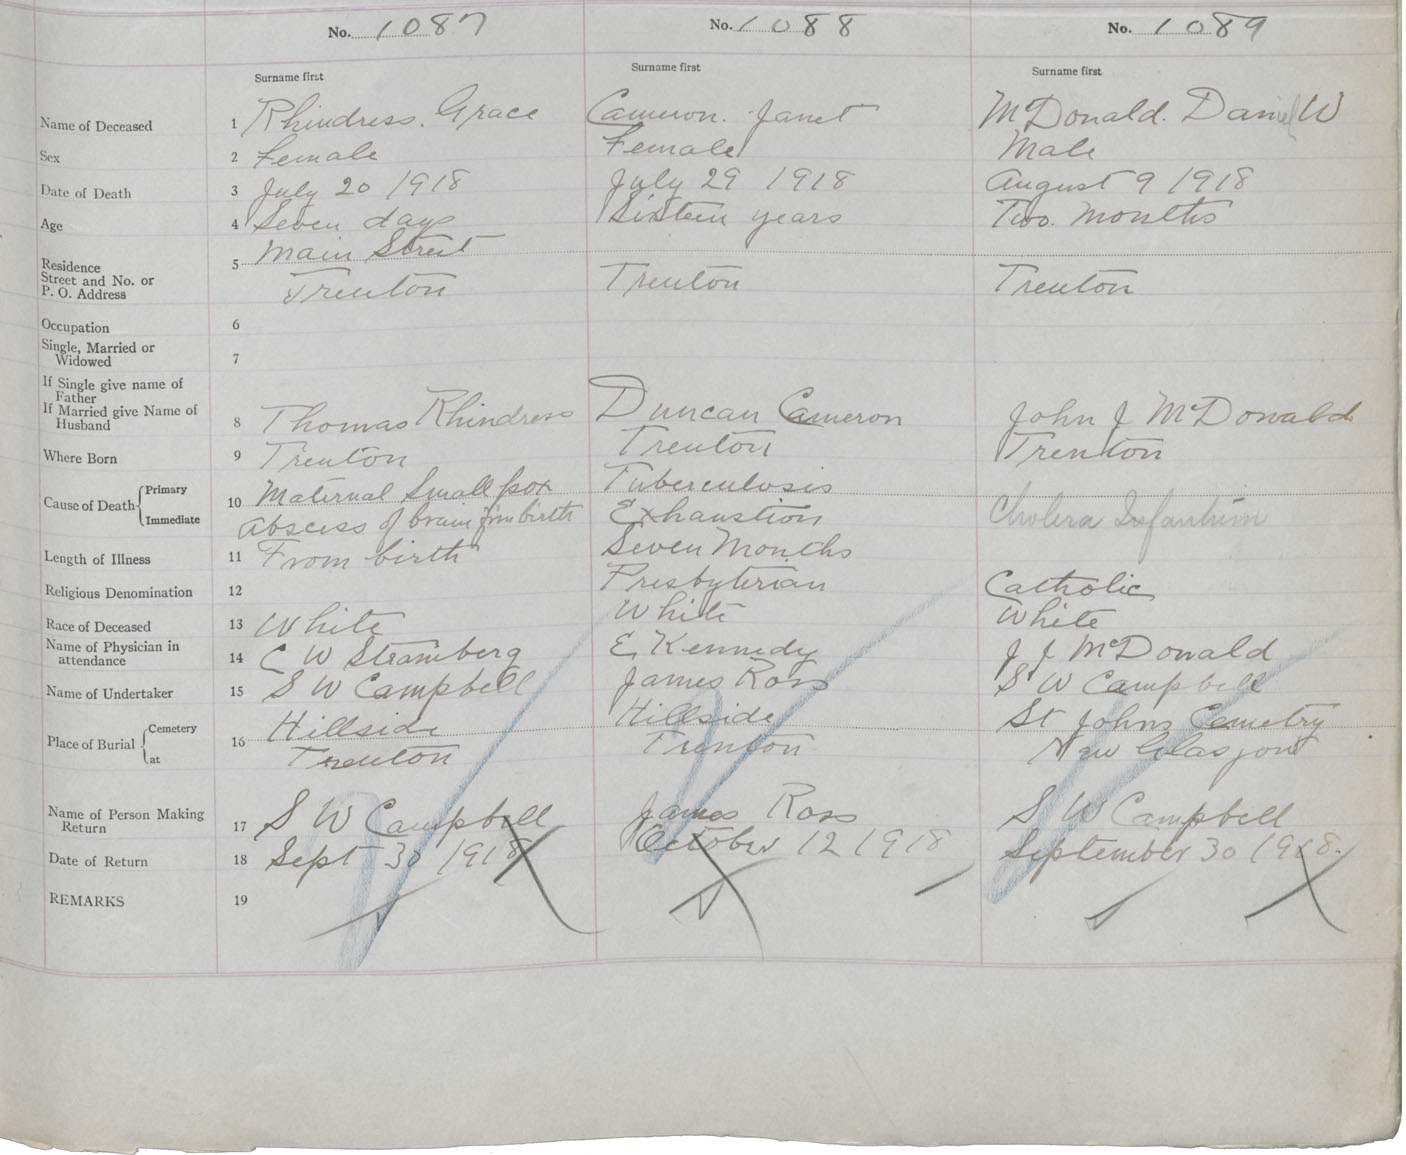 No. 1087 No. 1088 No. 1089
Surname first Surname first Surname first
Name of Deceased 1 Rhindress. Grace Cameron. Janet McDonald. Daniel W
Sex 2 Female Female Male
Date of Death 3 July 20 1918 July 29 1918 August 9 1918
Age 4 Seven days Sixteen years Two. Months
Residence 5 Main Street
Street and No. or
P. O. Address Trenton Trenton Trenton
Occupation 6
Single, Married or
Widowed 7
If Single give name of
Father
If Married give Name of
Husband 8 Thomas Rhindress Duncan Cameron John J McDonald
Where Born 9 Trenton Trenton Trenton
Cause of Death Primary 10 Maternal Small pox Tuberculosis
Immediate Abscess of brain from birth Exhaustion Cholera Infantum
Length of Illness 11 From birth Seven Months
Religious Denomination 12 Presbyterian Catholic
Race of Deceased 13 White White White
Name of Physician in
attendance 14 C W Stramberg E Kennedy J J McDonald
Name of Undertaker 15 S W Campbell James Ross S W Campbell
Place of Burial Cemetery 16 Hillside Hillside St Johns Cemetry
at Trenton Trenton New Glasgow
Name of Person Making
Return 17 S W Campbell James Ross S W Campbell
Date of Return 18 Sept 30 1918 October 12 1918 September 30 1918.
REMARKS 19